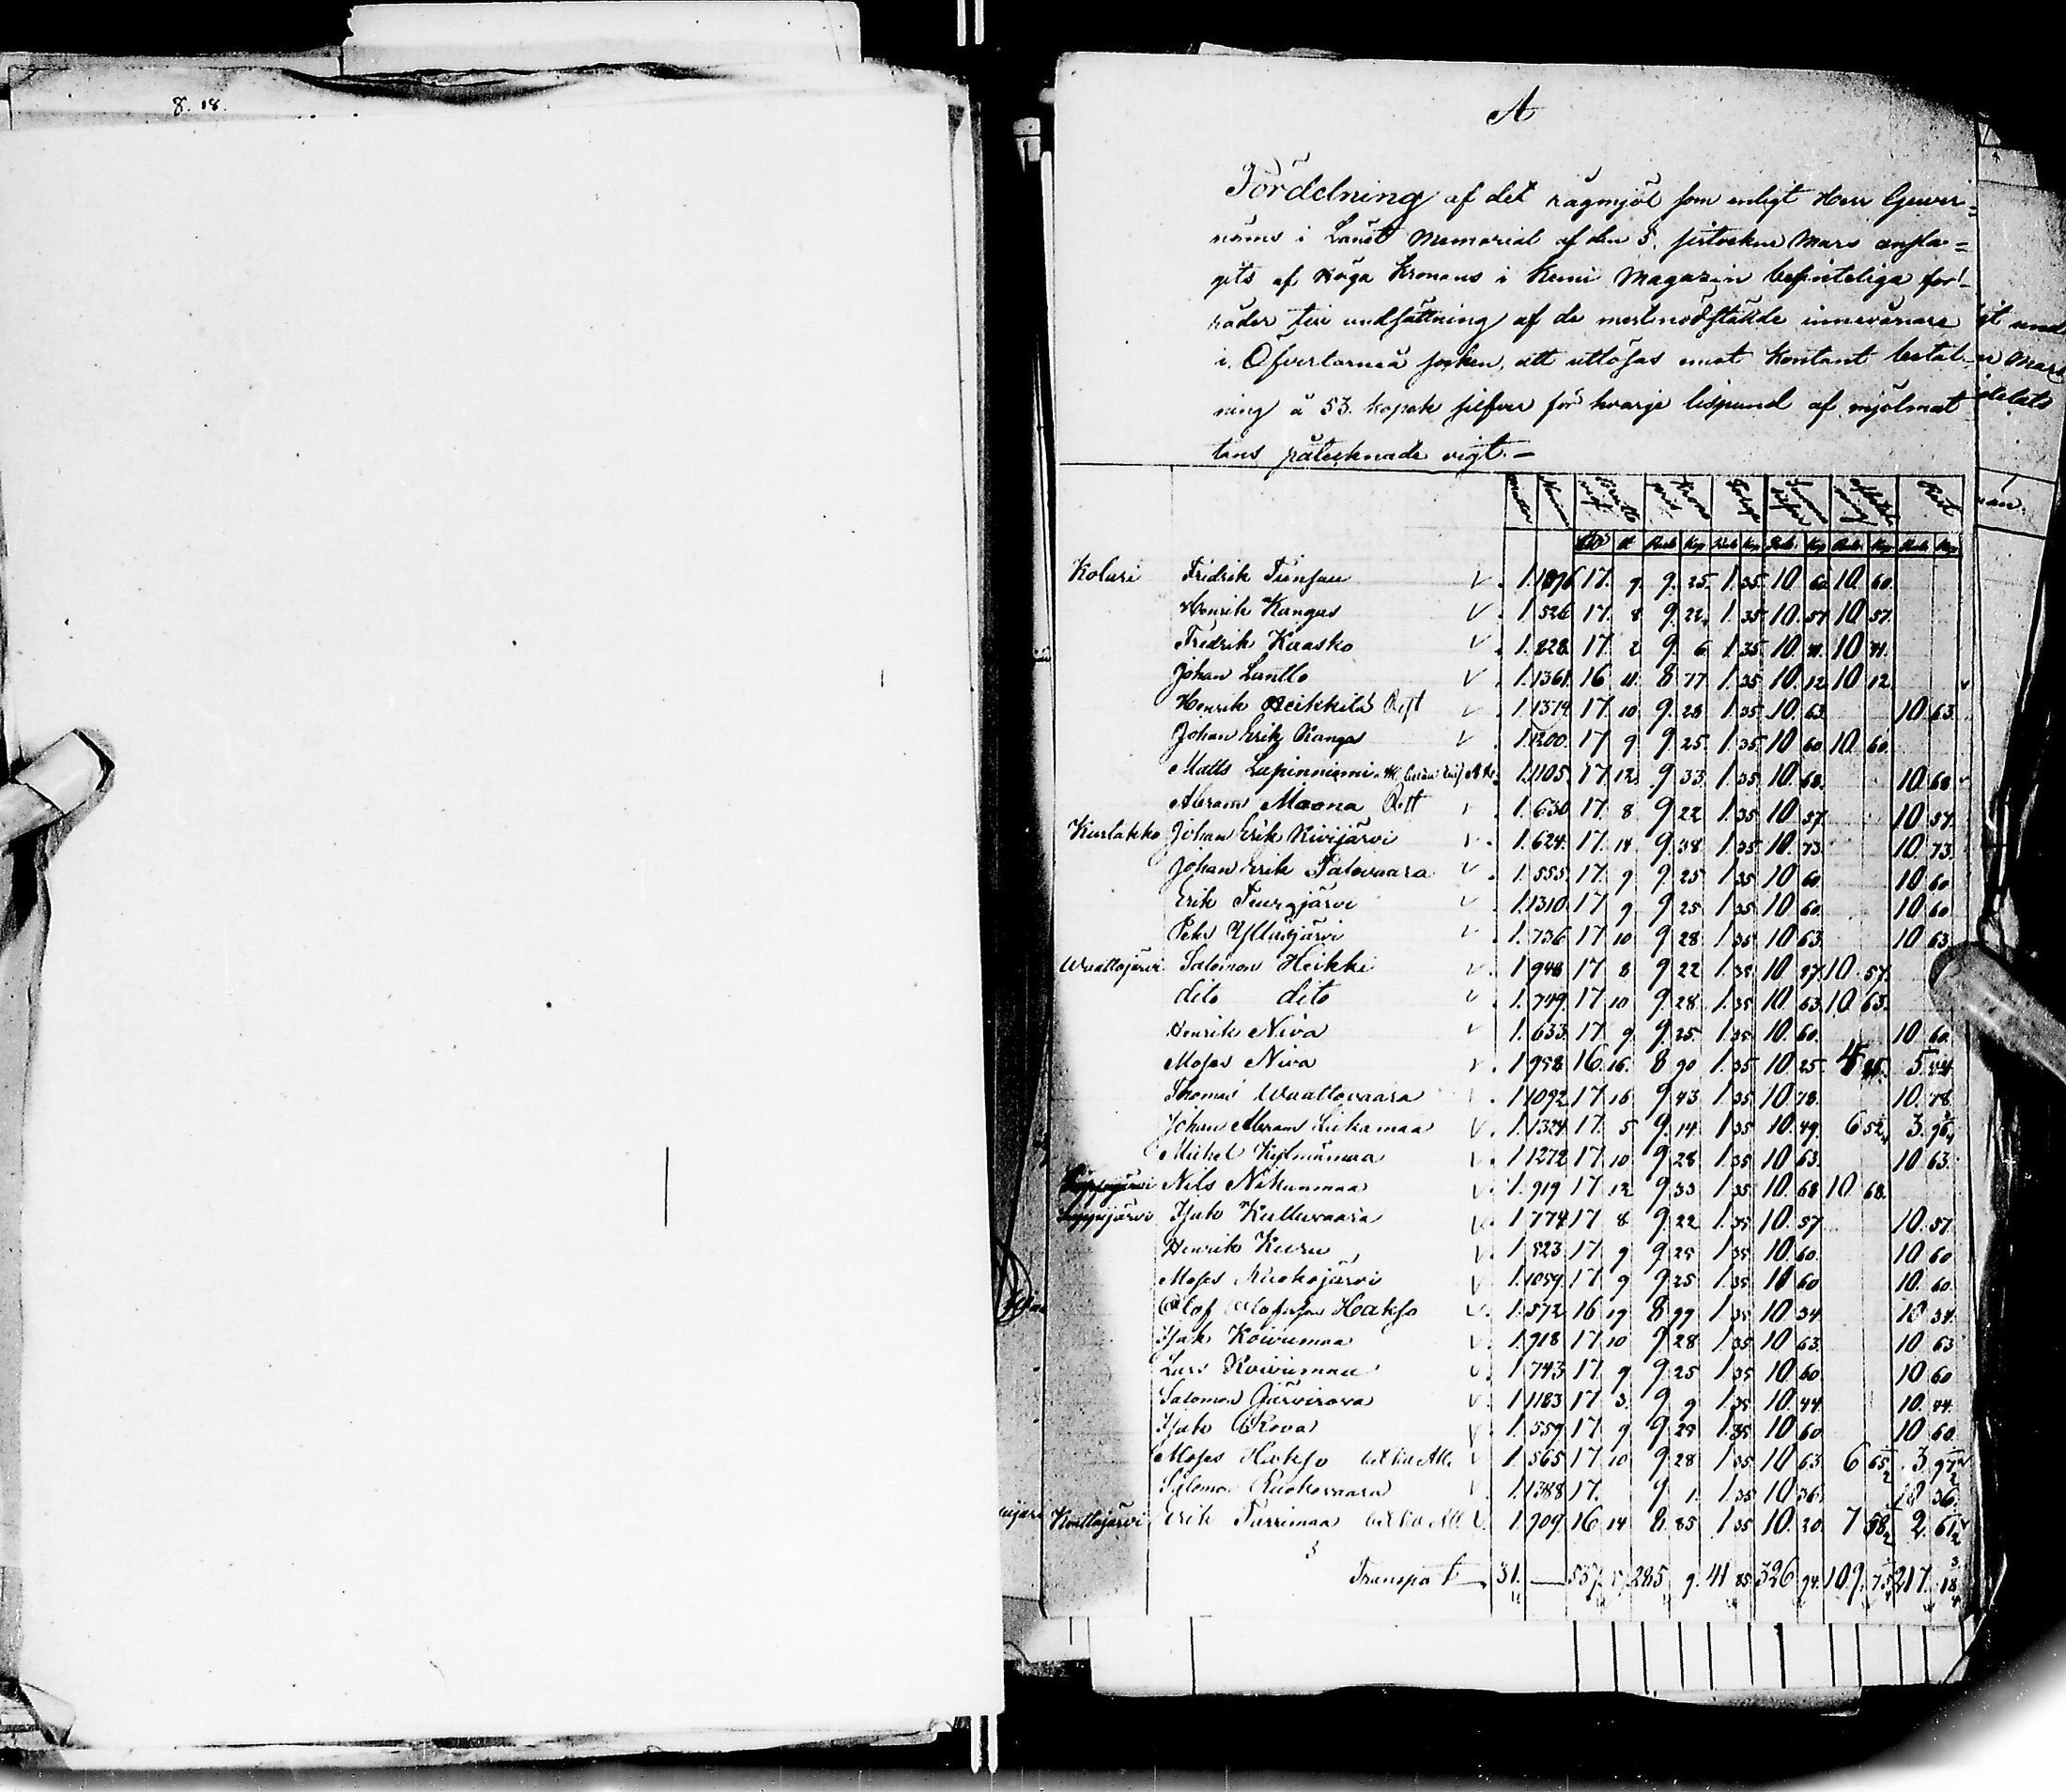 8. 18.
A
Fördelning af det rågmjöl som enligt Herr Guver=
nörns i Länet Memorial af den 5. sistvekne Mars ansla=
gits af Höga Kronans i Kemi Magazin befinteliga för=
råder till undsättning af de mest nödstälde innevånare
i Öfvertorneå socken, att utlösas emot Kontant betal-
ning à 53. kopek silfver för hvarje lispund af mjölmat
tans påtecknade vigt.—
Rest
Kolari Fridrik V. 1. 1076 17. 9. 9. 25. 1. 35. 10. 60. 10. 60.
Henrik Kangas V. 1. 526 17. 8 9. 22. 1. 35 10. 57 10 57.
Fredrik Kuasko V. 1. 828. 17. 2 9. 6 1. 35. 10. 41. 10 41.
Johan Lantto V. 1. 1361. 16 11. 8 77 1. 35 10. 12 10 12.
Henrik Heikkilä Rest V. 1. 1374. 17. 10 9. 28 1. 35. 10. 63. 10 63.
Johan Erik Kangas V. 1. 1200. 17 9 9 25. 1. 35 10 60 10. 60.
Matts Lapinniemi 1. 1105. 17 12. 9 33 1. 35 10. 68. 10. 68
Abram Maona Rest V. 1. 630 17. 8 9 22 1. 35 10. 57. 10. 57.
Kurtakko Johan Erik Kivijärvi V. 1. 624. 17. 14 9. 38 1. 35. 10. 73. 10. 73.
Johan Erik Palovaara V. 1. 555. 17. 9 9. 25 1. 35 10 60. 10 60
Erik Teurajärvi V. 1. 1310 17 9 9. 25 1. 35 10 60. 10 60
Petr Ylläsjärvi V. 1. 736 17 10 9. 28 1. 35 10 63. 10 63
Waattojärvi Salomon Heikki V. 1. 948 17 8 9. 22 1. 35 10 57. 10. 57.
dito dito V. 1. 749. 17 10 9. 28. 1. 35 10 63. 10 63.
Henrik Niva V 1. 633. 17 9 9. 25. 1. 35. 10. 60. 10. 60.
Moses Niva V. 1. 958. 16. 16. 8 90 1. 35 10 25. 5.
Thomas Waattovaara 1. 1092 17 16 9. 43 1. 35 10. 78. 10. 78.
Johan Abram Liikamaa V. 1. 1324 17. 5 9. 14. 1. 35 10. 49. 6 52 3. 96
Michel Kylmämaa V. 1. 1272 17 10 9. 28 1. 35 10 63. 10 63.
Nils Nikunmaa V. 1. 919 17 12 9 33 1. 35 10. 68 10 68.
Sieppijärvi Isak Kulluvaara V. 1. 774 17 8 9. 22 1. 35 10. 57 10. 57.
Henrik Kuru V. 1. 523. 17 9 9. 25 1. 35 10. 60. 10 60
Moses Ruokojärvi V. 1. 1059 17 9 9. 25 1. 35 10 60 10. 60.
Olof Olofsson Hakso V. 1. 572 16 19 8 99 1. 35 10. 34. 10 34.
Isak Koivumaa V. 1. 918 17 10 9. 28 1. 35 10 63. 10 63
Lars Koivumaa V. 1. 743 17. 9 9. 25 1. 35 10 60 10 60
Salomon Järvirova V. 1. 1183 17 3. 9 9 1. 35 10. 44. 10. 44.
Isak Rova V. 1. 559 17. 9 9 25 1. 35 10 60 10 60.
Moses Hakso V. 1. 565 17 10 9. 28 1. 35 10 63 6 65 3. 97
Salomon Ruokovaara V. 1. 1388 17. 9 1. 1. 35 10 36. 10 36.
Kontiojärvi Erik Turrimaa V. 1. 709 16 14 8. 85 1. 35 10. 20. 7 58 2. 61
Transport 31. — 537. 17. 285 9. 41 85 326 94. 109. 75 217. 18